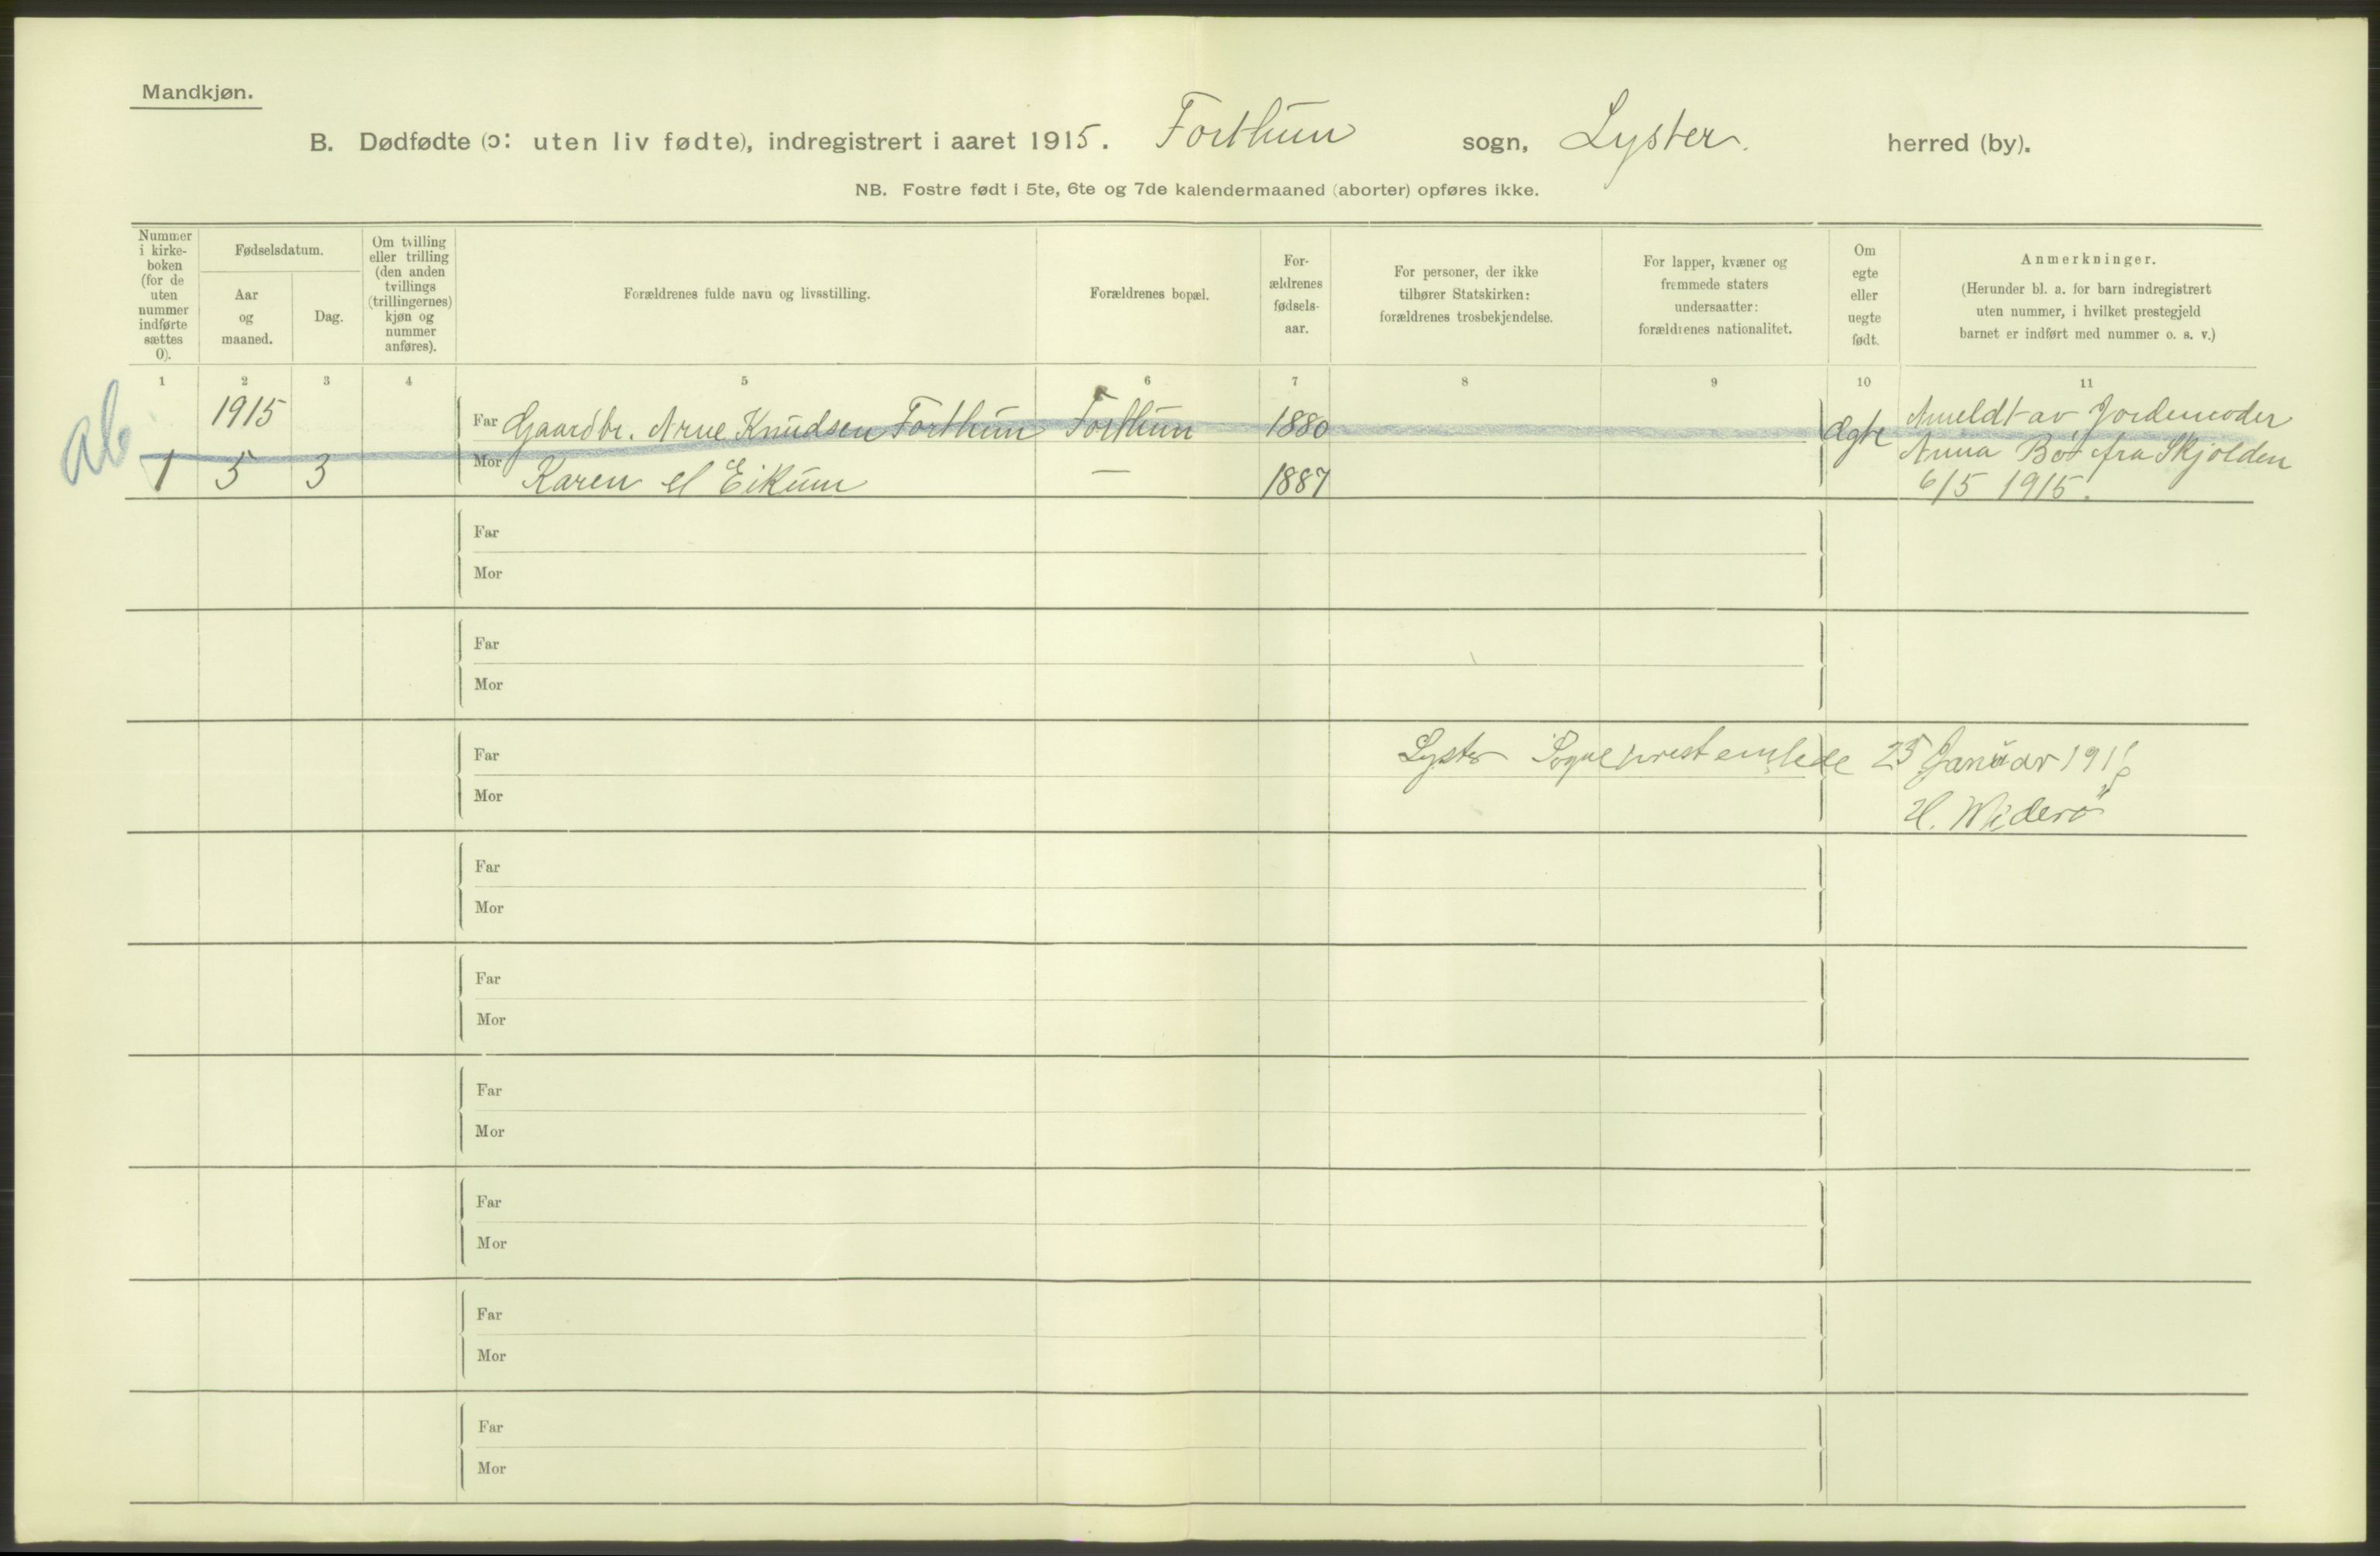 Mandkjøn.
B. Dødfødte (ɔ: uten liv fødte), indregistrert i aaret 1915. Forthun sogn, Lyster. herred (by).
NB. Fostre født i 5te, 6te og 7de kalendermaaned (aborter) opføres ikke.
Nummer i kirke-boken (for de uten nummer indførte sættes 0).
Fødselsdatum.
Aar og maaned.
Dag.
Om tvilling eller trilling (den anden tvillings (trillingernes) kjøn og nummer anføres).
Forældrenes fulde navn og livsstilling.
Forældrenes bopæl.
For-ældrenes fødsels-aar.
For personer, der ikke tilhører Statskirken: forældrenes trosbekjendelse.
For lapper, kvæner og fremmede staters undersaatter: forældrenes nationalitet.
Om egte eller uegte født.
Anmerkninger.
(Herunder bl. a. for barn indregistrert uten nummer, i hvilket prestegjeld barnet er indført med nummer o. s. v.)
1 2 3 4 5 6 7 8 9 10 11
ab
1915 Far Gaardbr. Arne Knudsen Forthun Forthun 1880 Ægte Anmeldt av Jordemoder
Anna Bø fra Skjolden
1 5 3 Mor Karen Eikum — 1887 6/5 1915.
Far
Mor
Far
Mor
Far Lyster Sogneprestembede 25 Januar 1916
Mor H. Widerö
Far
Mor
Far
Mor
Far
Mor
Far
Mor
Far
Mor
Far
Mor